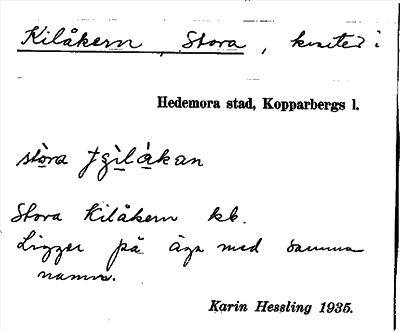 Kilåkern, Stora, kvarter i
Hedemora stad, Kopparbergs l.
stòra
Stora Kilåkern kb.
Ligger på äga med samma
namn.
Karin Hessling 1935.